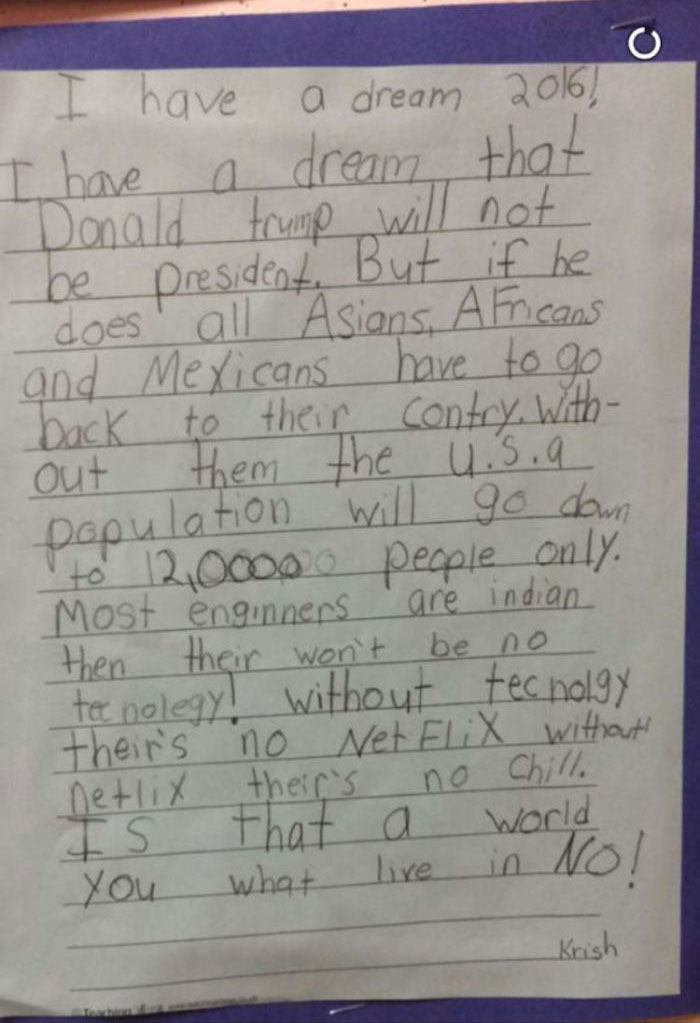 I have a dream 2016!
I have a dream that
Donald trump will not
be president. But if he
does all Asians, AFricans
and Mexicans have to go
back to their contry. With-
out them the U.S.a
population will go down
to 12,000000 people only.
Most enginners are indian
then their won't be no
tecnolegy! without tecnolgy
their's no NetFLiX without
netlix their's no Chill.
IS that a world
you what live in NO!
Krish
©Teaching